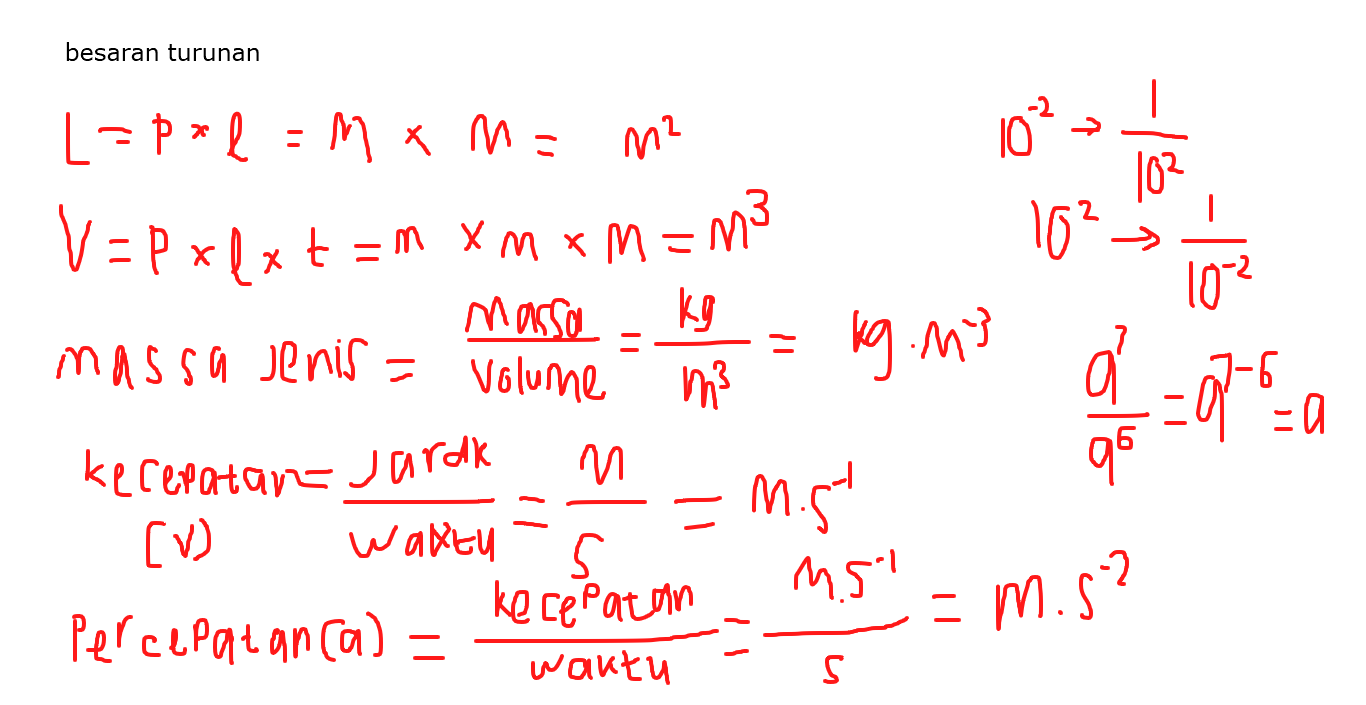 besaran turunan
L = p × l = m × m = m²
V = p × l × t = m × m × m = m³
massa jenis = massa/volume = kg/m³ = kg . m⁻³
kecepatan (v) = Jarak/waktu = m/s = m . s⁻¹
Percepatan (a) = kecepatan/waktu = m.s⁻¹/s = m . s⁻²
10⁻² → 1/10²
10² → 1/10⁻²
a⁷/a⁶ = a⁷⁻⁶ = a